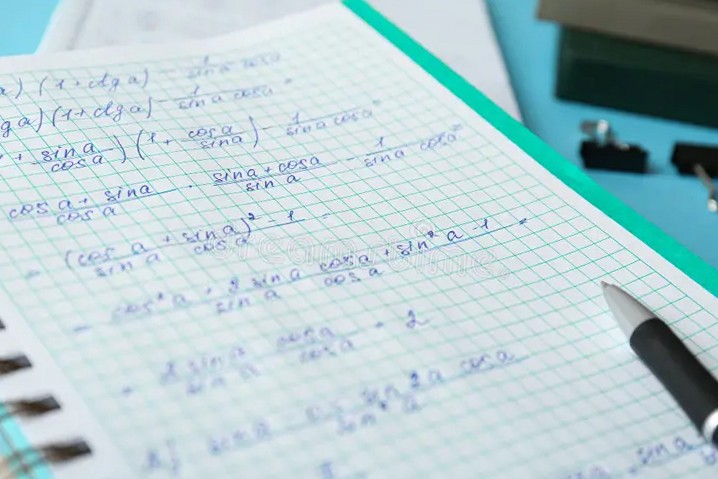 a) (1 + ctg a) - 1/(sin a cos a)
ga) (1 + ctg a) - 1/(sin a cos a) =
+ sin a/cos a) (1 + cos a/sin a) - 1/(sin a cos a) =
(cos a + sin a)/cos a · (sin a + cos a)/sin a - 1/(sin a cos a) =
= ((cos a + sin a)² - 1)/(sin a cos a) =
= (cos² a + 2 sin a cos a + sin² a - 1)/(sin a cos a) =
= (2 sin a cos a)/(sin a cos a) = 2
2) sin a sin² a cos a
sin² a
sin a
dreamstime.com